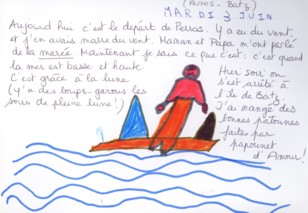 (Perros - Batz)
MARDI 3 JUIN
Aujourd'hui c'est le départ de Perros. Y a eu du vent,
et j'en avais marre du vent. Maman et Papa m'ont parlé
de la marée. Maintenant je sais ce que c'est : c'est quand
la mer est basse et haute.
C'est grâce à la lune.
(Y'a des loups-garous les
soirs de pleine lune !)
Hier soir on
s'est arrêté à
l'île de Batz,
J'ai mangé des
bonnes
faites par
papounet
d'Amour !